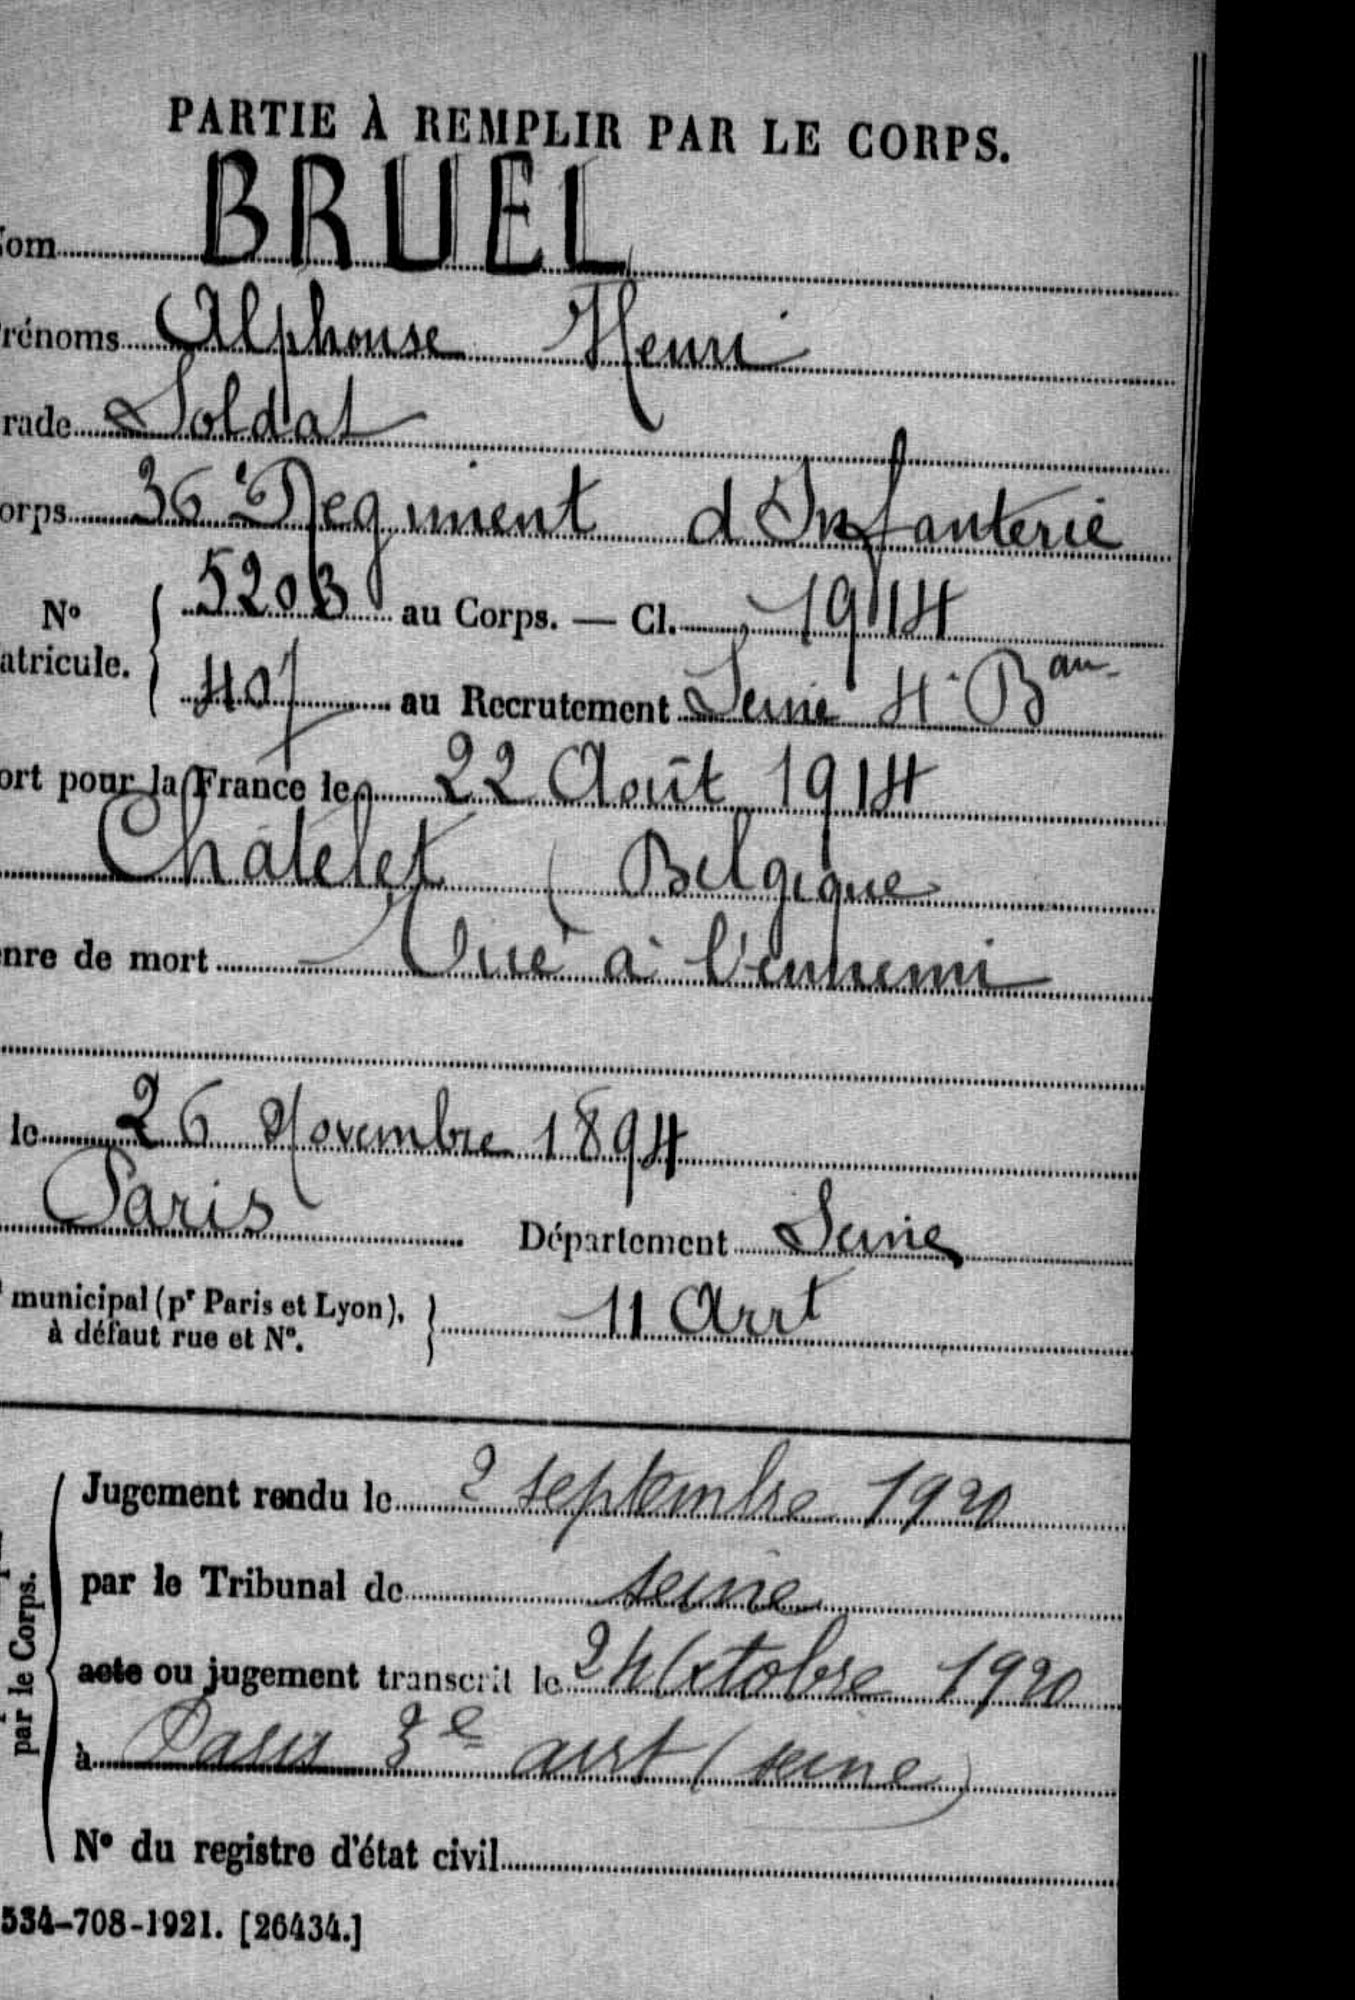 PARTIE À REMPLIR PAR LE CORPS.
Nom BRUEL
rénoms Alphonse Henri
rade Soldat
orps 36e Regiment d Infanterie
No
atricule.
5203 au Corps. — Cl. 1914
407 au Recrutement Seine 4e Bau
ort pour la France le 22 Août 1914
Chatelet (Belgique
nre de mort Tué à l'ennemi
le 26 Novembre 1894
Paris Département Seine
municipal (pr Paris et Lyon),
à défaut rue et No.
11 Arrt
par le Corps.
Jugement rendu le 2 septembre 1920
par le Tribunal de Seine
acte ou jugement transcrit le 24 Octobre 1920
à Paris 3e arrt (seine)
No du registre d'état civil
534-708-1921. [26434.]